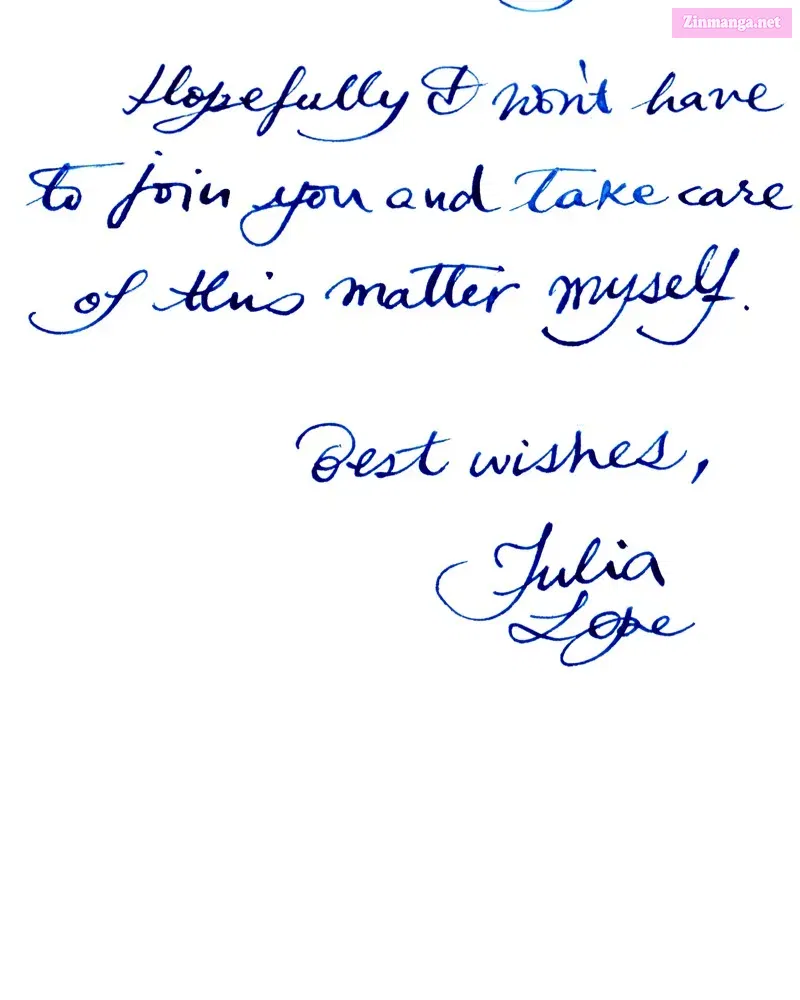 Zinmanga.net
Hopefully I won't have
to join you and take care
of this matter myself.
Best wishes,
Julia
Lope